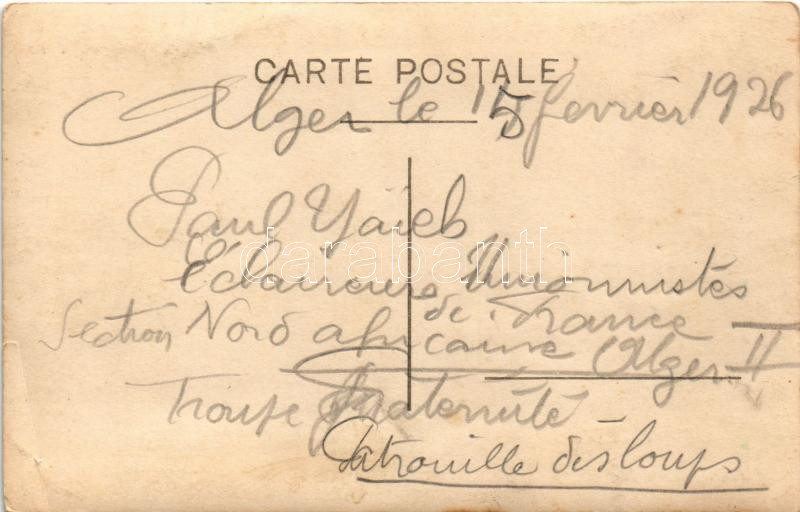 CARTE POSTALE
Alger le 15 février 1926
Paul Yaïch
Eclaireurs Unionnistes
de France
Section Nord africaine Alger II
Troupe fraternité
Patrouille des loups
darabanth